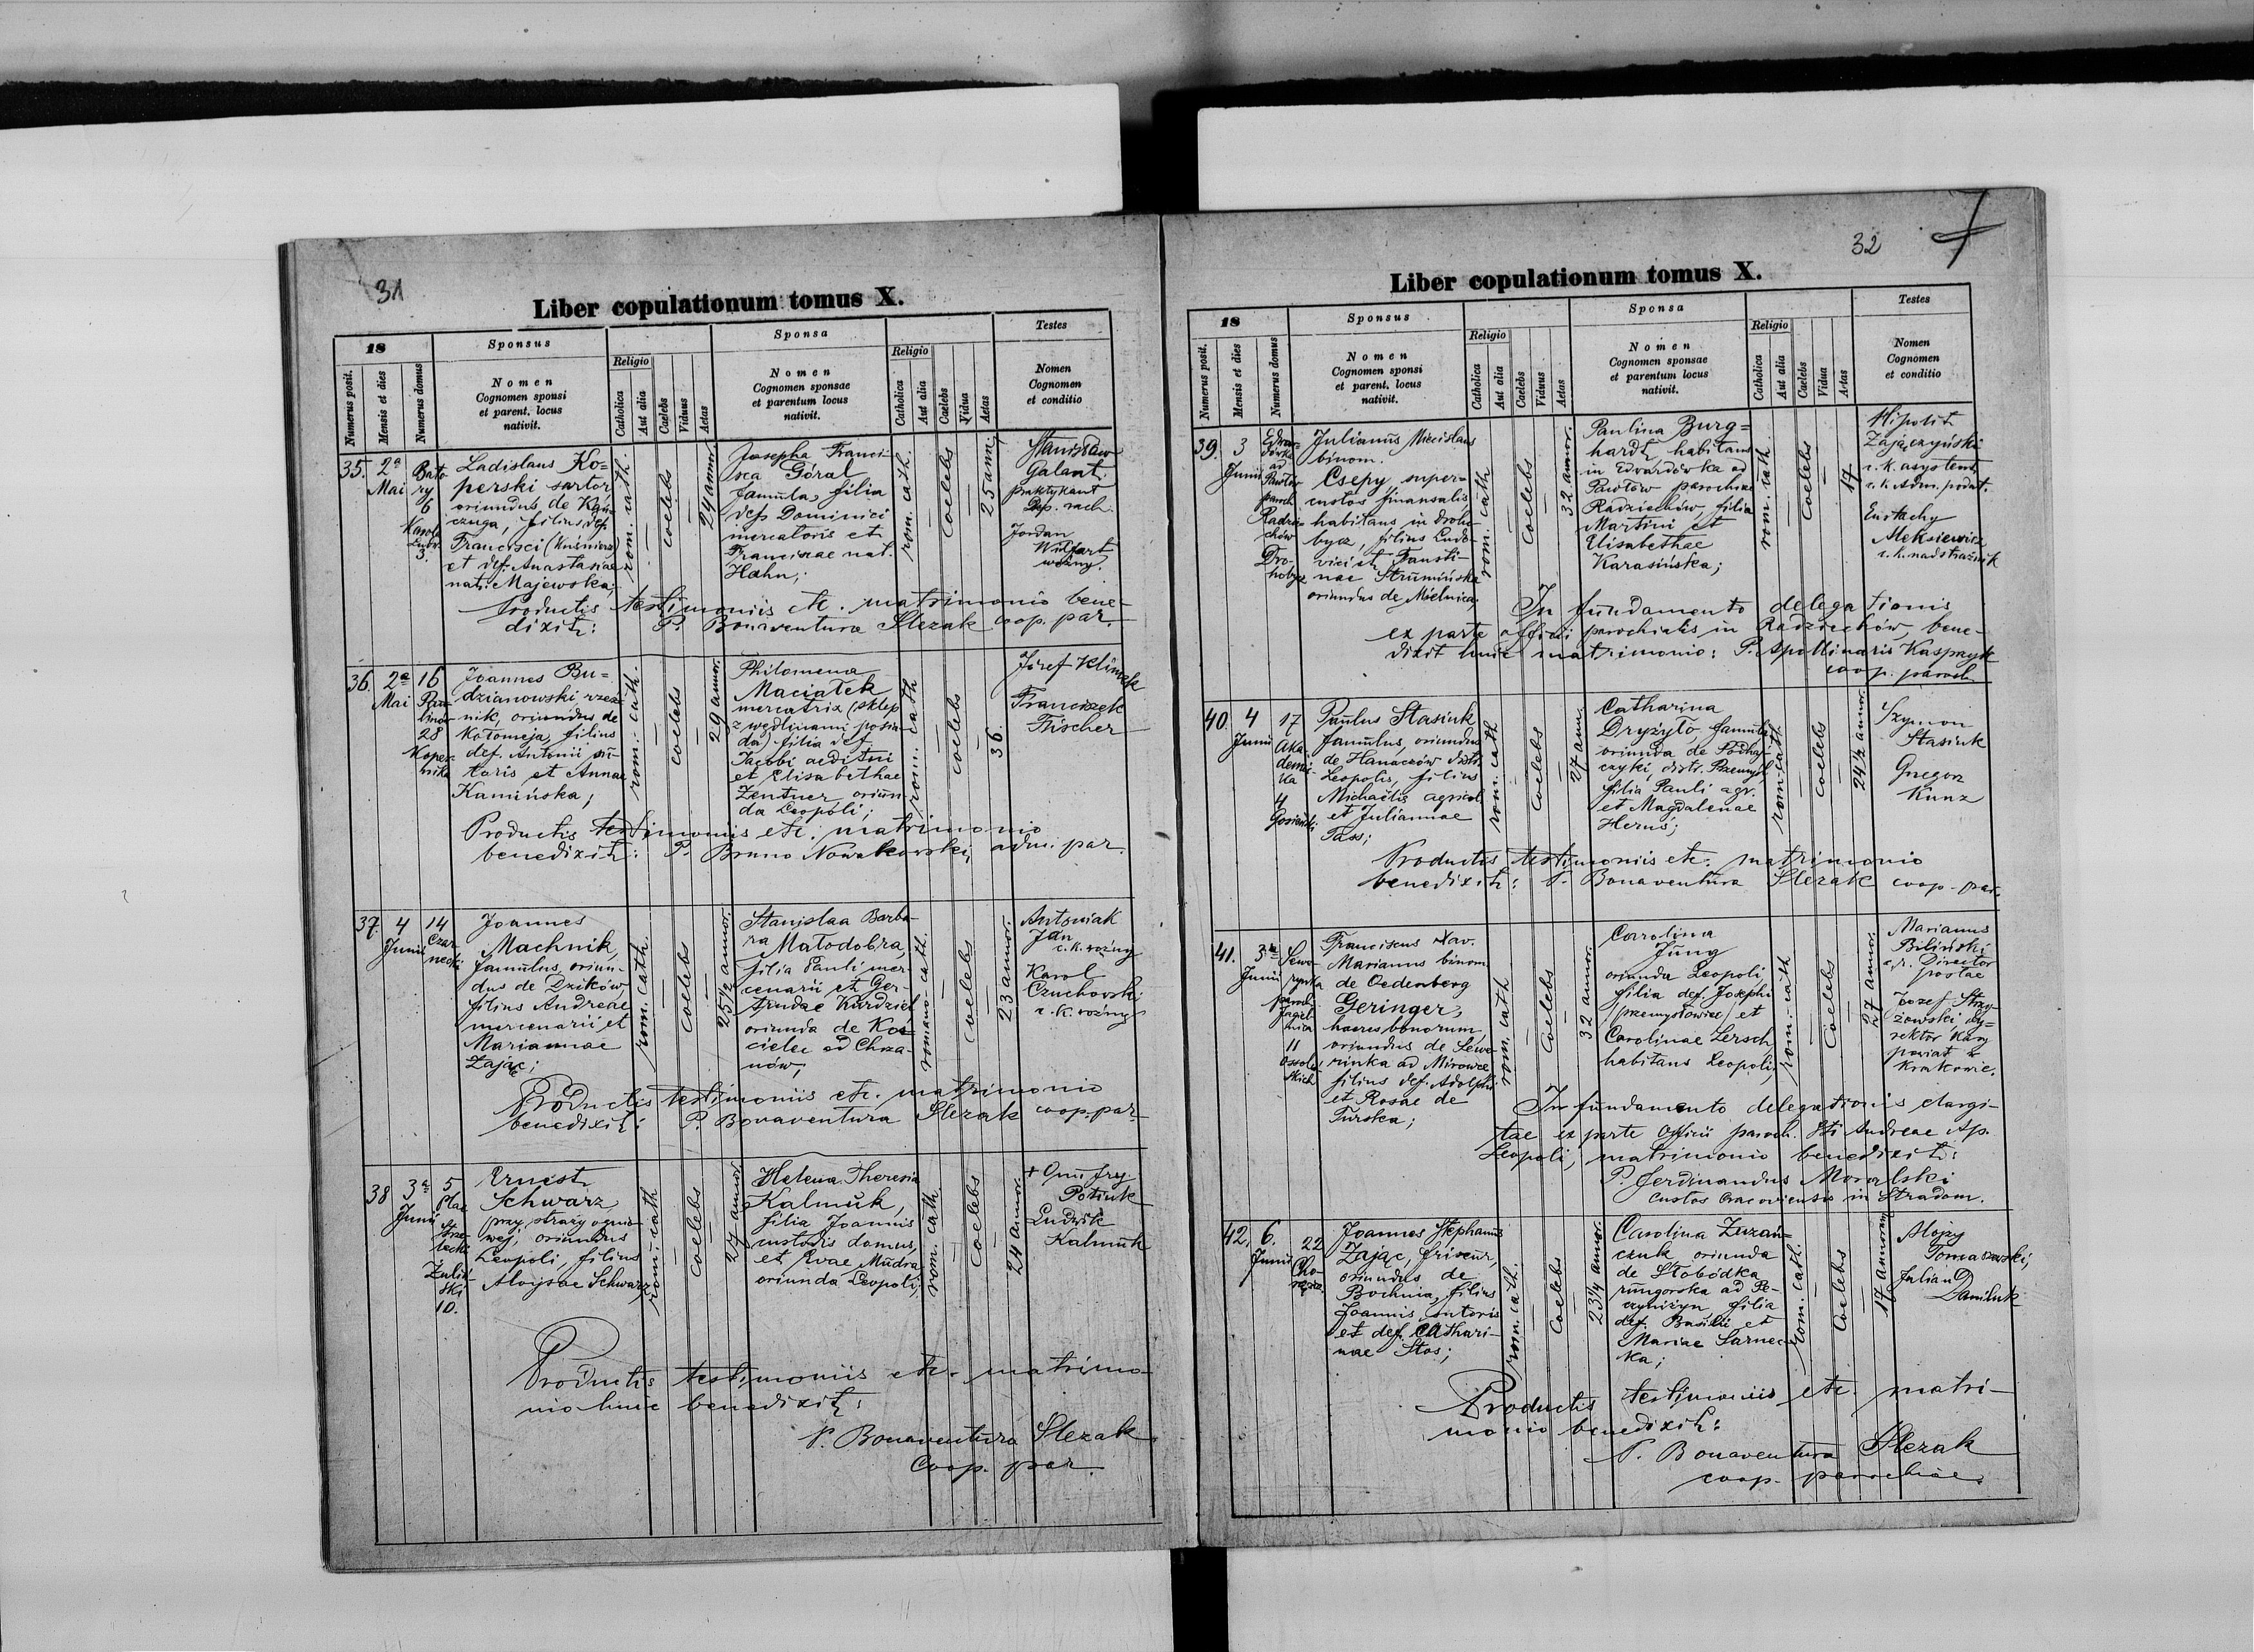 31
Liber copulationum tomus X.
18
Sponsus
Sponsa
Testes
Numerus posit.
Mensis et dies
Numerus domus
Nomen
Cognomen sponsi
et parent. locus
nativit.
Religio
Catholica
Aut alia
Caelebs
Viduus
Aetas
Nomen
Cognomen sponsae
et parentum locus
nativit.
Religio
Catholica
Aut alia
Caelebs
Vidua
Aetas
Nomen
Cognomen
et conditio
35.
2a
Mai
Bato
ry
6
Karola
Ludw.
3.
Ladislaus Ko=
perski sartor
oriundus de Kań
czuga, filius def.
Francisci (Kuśnierz)
et def. Anastasiae
nat. Majewska;
rom. cath.
coelebs
24 annor.
Josepha Franci-
sca Góral
famula, filia
def. Dominici
mercatoris et
Franciscae nat.
Hahn;
rom. cath.
coelebs
25 ann.
Stanisław
Galant
praktykant
Dep. rach.
Jordan
Wilfart
woźny.
Productis testimoniis etc. matrimonio bene-
dixit: P. Bonaventura Slezak coop. par.
36.
2a
Mai
16
Pau-
lino-
28
Koper-
nika
Joannes Bu=
dzianowski rzeź-
nik, oriundus de
Kołomeja, filius
def. Antonii su-
toris et Annae
Kamińska;
rom. cath.
coelebs
29 annor.
Philomena
Maciałek
mercatrix (sklep
z wędlinami posia-
da) filia def.
Jacobi aeditui
et Elisabethae
Zentner oriun-
da Leopoli;
rom. cath
coelebs
36.
Józef Klimek
Franciszek
Fischer
Productis testimoniis etc. matrimonio
benedixit: P. Bruno Nowakowski, adm. par.
37.
4
Junii
14
Czar
necki
Joannes
Machnik,
famulus, oriun-
dus de Dzików
filius Andreae
mercenarii et
Mariannae
Zając;
rom. cath.
coelebs
25 1/2 annor.
Stanislaa Barba-
ra Małodobra,
filia Pauli mer-
cenarii et Ger-
trudae Kurdziel
oriunda de Koś
cielec ad Chrza-
nów;
romano cath.
coelebs
23 annor.
Antoniak
Jan
c. k. woźny
Karol
Czuchowski
c. k. woźny
Productis testimoniis etc. matrimonio
benedixit: P. Bonaventura Slezak coop. par.
38
3a
Junii
5
Plac
Strze-
lecki
Zuliń-
ski
10.
Ernest
Schwarz,
przy straży ognio-
wej, oriundus
Leopoli, filius
Aloysae Schwarz
rom. cath
coelebs
27 annor.
Helena Theresia
Kalmuk,
filia Joannis
custodis domus,
et Evae Mudra
oriunda Leopoli;
rom. cath.
coelebs
24 annor.
+ Onufry
Potiuk
Ludwik
Kalmuk
Productis testimoniis etc. matrimo-
nio huic benedixit:
P. Bonaventura Slezak
coop. par.
32
Liber copulationum tomus X.
18
Sponsus
Sponsa
Testes
Numerus posit.
Mensis et dies
Numerus domus
Nomen
Cognomen sponsi
et parent. locus
nativit.
Religio
Catholica
Aut alia
Caelebs
Viduus
Aetas
Nomen
Cognomen sponsae
et parentum locus
nativit.
Religio
Catholica
Aut alia
Caelebs
Vidua
Aetas
Nomen
Cognomen
et conditio
39.
3
Junii
Edwar-
dówka
ad
Pawłów
paroch.
Radzie
chów
Dro-
hobycz
Julianus Miecislaus
binom.
Csepy, super=
custos finansalis
habitans in Droho-
bycz, filius Ludo-
vici et Fausti-
nae Strumińska
oriundus de Mielnica;
rom. cath
coelebs
32 annor.
Paulina Burg=
hardt, habitans
in Edvardówka ad
Pawłów parochiae
Radziechów, filia
Martini et
Elisabethae
Karasińska;
rom. cath.
coelebs
17
Hipolit
Zajączyński
c. k. asystent
c. k. Adm. podat.
Eustachy
Aleksiewicz
c. k. nadstrażnik
In fundamento delegationis
ex parte officii parochialis in Radziechów, bene-
dixit huic matrimonio: P. Apollinaris Kasprzyk
coop. paroch.
40.
4
Junii
17
Aka-
demi-
cka
4
Paulus Stasiuk
famulus, oriundus
de Hanaczów distr.
Leopolis, filius
Michaëlis agricol
et Juliannae
Pass;
rom. cath
coelebs
27 ann.
Catharina
Dryżyło, famula
oriunda de Podhaj-
czyki, distr. Przemyśl.
filia Pauli agr.
et Magdalenae
Herus;
rom. cath
coelebs
24 1/2 annor.
Szymon
Stasiuk
Gregor
Kunz
Productis testimoniis etc. matrimonio
benedixit: P. Bonaventura Slezak coop. par.
41.
3a
Junii
Sewe-
rynka
paroch.
Jagiel-
nica
11
Ossoliń-
skich
Franciscus Xav.
Marianus binom
de Oedenberg
Geringer,
haeres bonorum,
oriundus de Sewe-
rinka ad Mirowce
filius def. Adolphi
et Rosae de
Turska;
rom. cath
coelebs
32 annor.
Carolina
Jung
oriunda Leopoli,
filia def. Josephi
(przemysłowiec) et
Carolinae Lersch
habitans Leopoli;
rom. cath
coelebs
27 annor.
Marianus
Biliński
c. r. Director
postae
Józef Strzy-
żowski dy-
rektor Kasy
powiat. w
Krakowie.
In fundamento delegationis elargi-
tae ex parte Officii paroch. Sti Andreae Ap.
Leopoli, matrimonio benedixit:
P. Ferdinandus Moralski
Custos Cracoviensis in Stradom.
42.
6.
Junii
22
Cho-
rąż.
Joannes Stephanus
Zając, friseur,
oriundus de
Bochnia, filius
Joannis sutoris
et def. Cathari-
nae Stos;
rom. cath.
coelebs
23 1/4 annor.
Carolina Zuzań-
czuk oriunda
de Słobódka
rungorska ad Pe-
czyniżyn, filia
def. Basilii et
Mariae Sarnec-
ka;
rom. cath.
coelebs
17 annorum
Alojzy
Tomaszewski,
Julian
Daniluk
Productis testimoniis etc. matri-
monio benedixit:
P. Bonaventura Slezak
coop. parochiae.